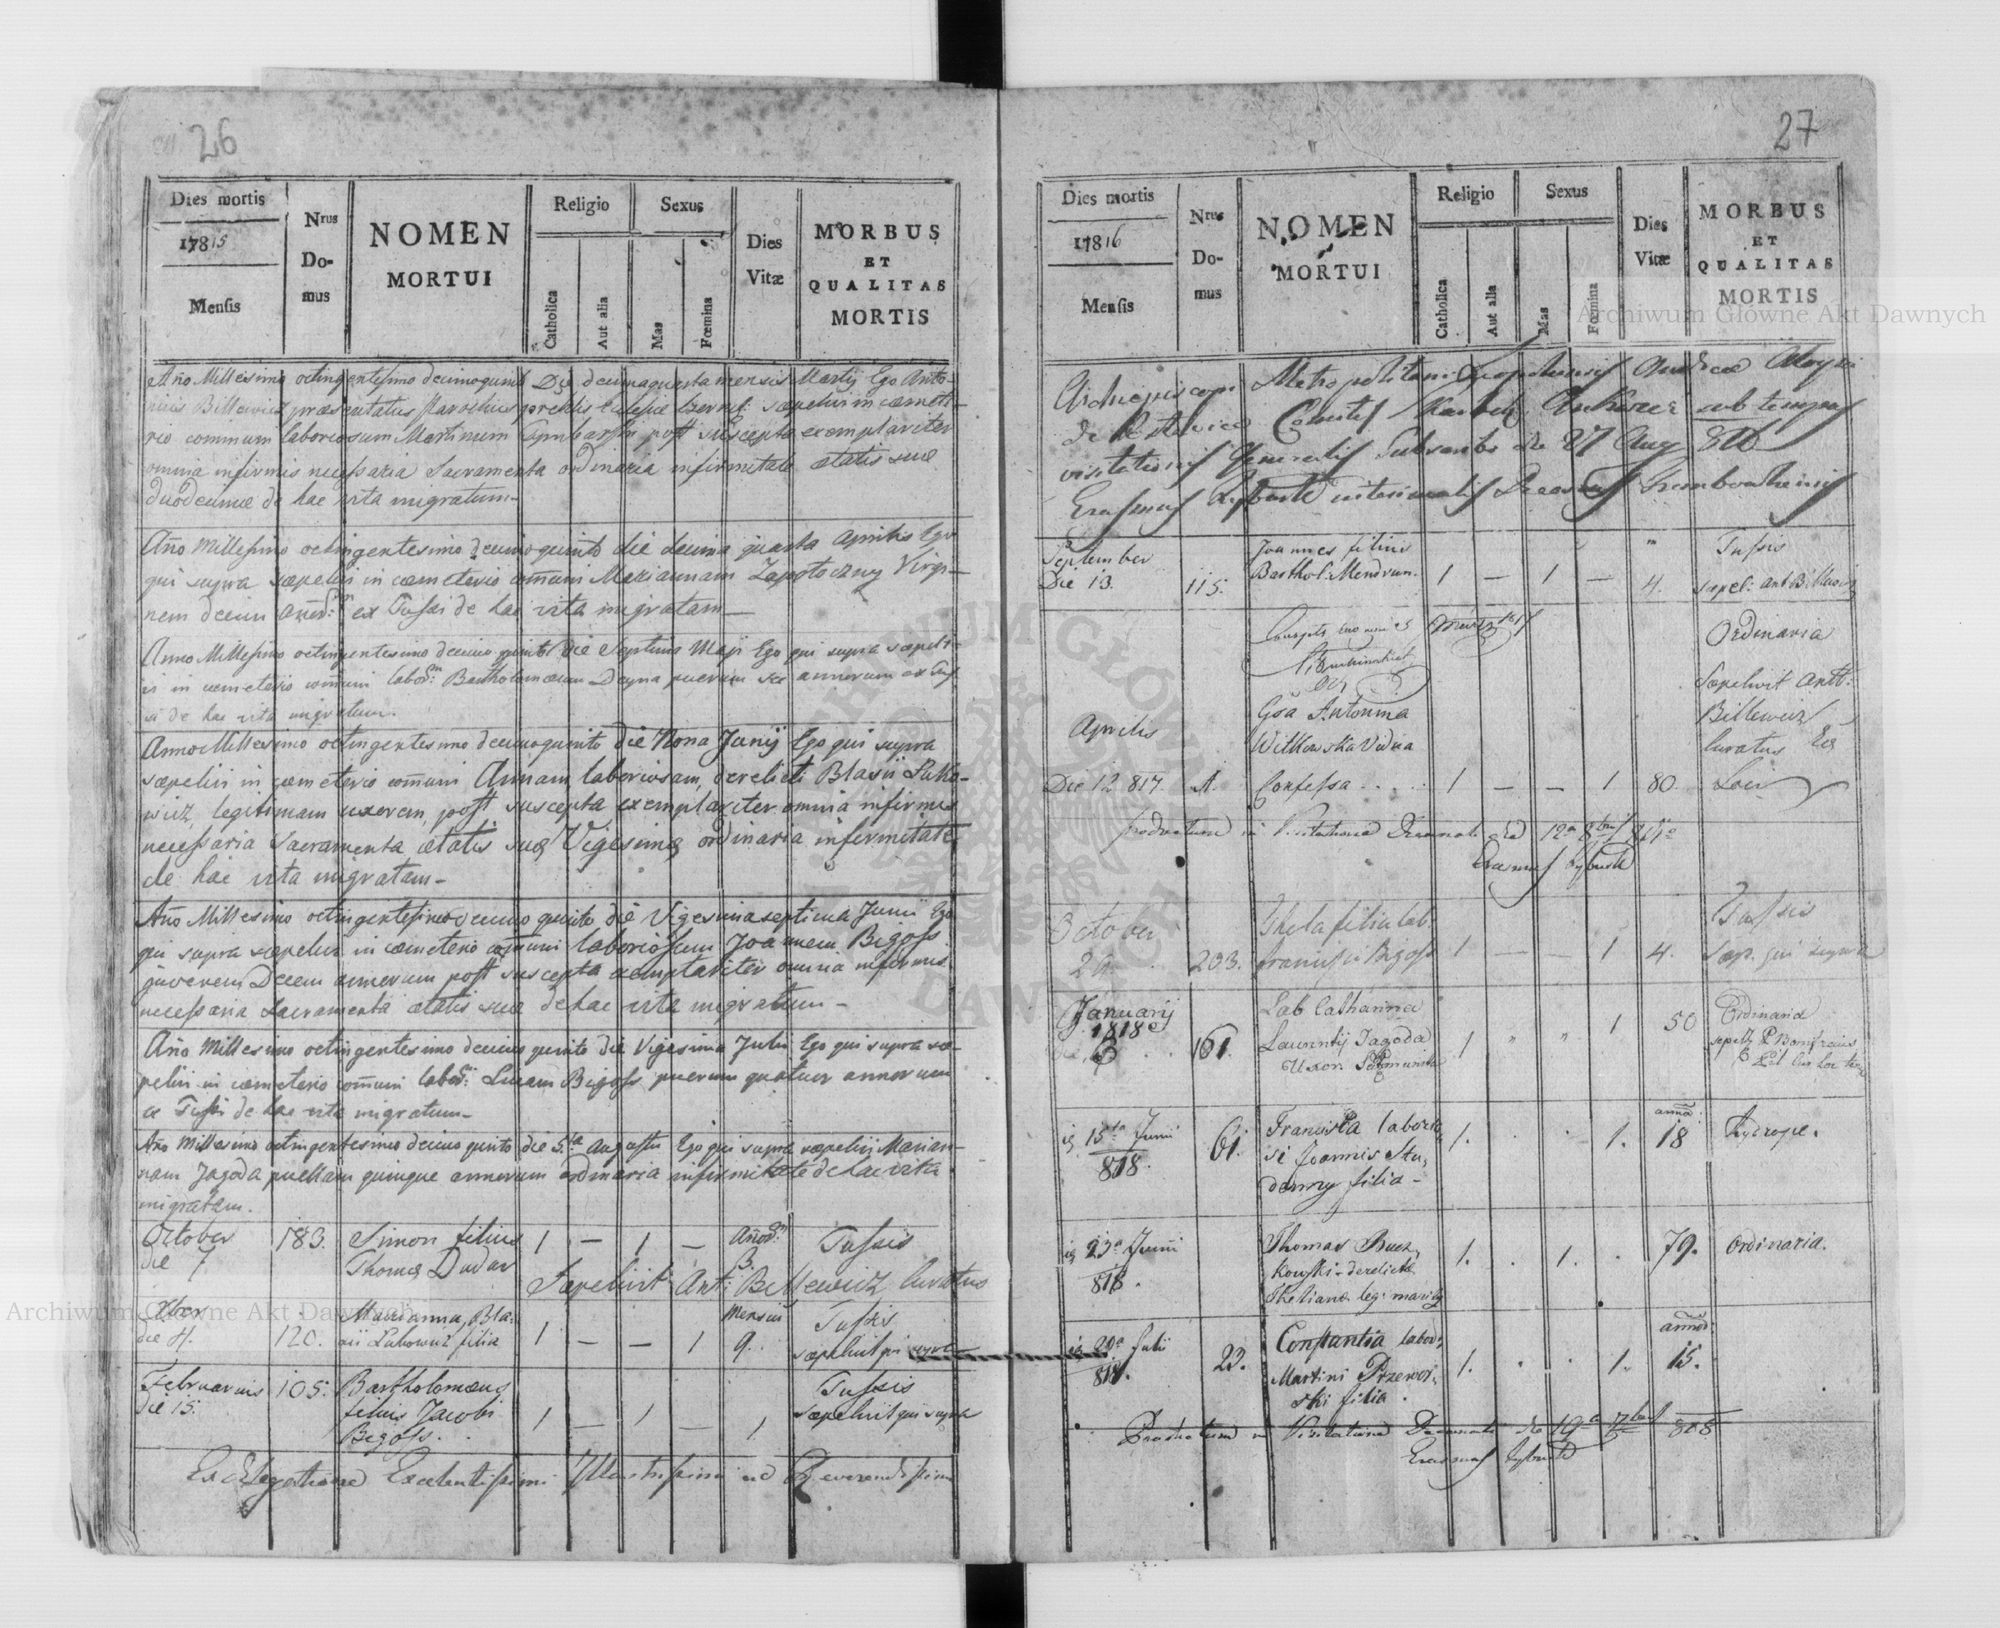 26
Dies mortis
17815
Mensis
Nrus
Do-
mus
NOMEN
MORTUI
Religio
Catholica
Aut alia
Sexus
Mas
Fœmina
Dies
Vitæ
MORBUS
ET
QUALITAS
MORTIS
Año Millesimo octingentesimo decimoquinto Die decimaquarta mensis Martij Ego Anto-
nius Billewicz præsentatus Parochus Ecclesiæ sæpelivi in cæmete-
rio communi laboriosum Martinum post suscepta exemplariter
omnia infirmis necessaria Sacramenta ordinaria infirmitate ætatis suæ
duodecimæ de hac vita migratum-
Año Millesimo octingentesimo decimo quinto die decima quarta Aprilis Ego
qui supra sæpelivi in cæmeterio com̃uni Mariannam Zapotoczny Virgi-
nem decem ex Tussi de hac vita migratam-
Anno Millesimo octingentesimo decimo quinto die Septima Maji Ego qui supra sæpeli-
vi in cæmeterio com̃uni Bartholomæum Dayna puerum sex annorum ex Tus-
si de hac vita migratum.
Anno Millesimo octingentesimo decimoquinto die Nona Junij Ego qui supra
sæpelivi in cæmeterio com̃uni Annam, laboriosam, derelicti Blasii Luko-
wicz, legitimam uxorem, post suscepta exemplariter omnia infirmis
necessaria Sacramenta ætatis suæ Vigesimæ ordinaria infirmitate
de hac vita migratam-
Año Millesimo octingentesimo decimo quinto die Vigesima septima Junii Ego
qui supra sæpelivi in cæmeterio com̃uni laboriosum Joannem Bigoss
juvenem Decem annorum post suscepta exemplariter omnia infirmis
necessaria Sacramenta ætatis suæ de hac vita migratum-
Año Millesimo octingentesimo decimo quinto die Vigesima Julii Ego qui supra sæ-
pelivi in cæmeterio com̃uni Lucam Bigoss puerum quatuor annorum
ex Tussi de hac vita migratum-
Año Millesimo octingentesimo decimo quinto die 5ta Augusti Ego qui supra sæpelivi Marian-
nam Jagoda puellam quinque annorum ordinaria infirmitate de hac vita
migratam.
October
die 7
183.
Simon filius
Thomæ Dudar
1 — 1 —
Tussis
Sæpelivit Ant: Billewicz Curatus
Xber
120.
Marianna, Bla-
sii Lukowicz filia
1 — — 1
Mensium
9.
Tussis
sæpelivit qui supra
Februarius
die 15.
105.
Bartholomæus
filius Jacobi
Bigoss.
1 — 1 —
1
Tussis
sæpelivit qui supra
Ex Delegatione Excelentissimi Illustrissimi ac Reverendissimi
27
Dies mortis
17816
Mensis
Nrus
Do-
mus
NOMEN
MORTUI
Religio
Catholica
Aut alia
Sexus
Mas
Fœmina
Dies
Vitæ
MORBUS
ET
QUALITAS
MORTIS
Archiepiscopi Metropolitani Leopoliensis Andreæ Aloysii
de Comitis Ankwicz sub tempus
visitationis Generalis die 27 Aug 816
Erasmus
September
Die 13.
115.
Joannes filius
Barthol: Mendrun.
1 — 1 —
4.
Tussis
sepel: Ant Billewicz
Aprilis
Die 12 817.
A.
Gsa Antonina
Witkowska Vidua
Confessa . . . .
1 — — 1
80.
Ordinaria
Sæpelivit Antt:
Billewicz
Curatus
Loci
Productum in Visitatione Decanali die 12a 8bris 817o
Erasmus
October
29.
203.
Thecla filia lab.
Francisci Bigoss
1 — — 1
4.
Tussis
Sæp. qui supra
Januarij
1818o
161.
Lab Catharina
Laurentij Jagoda
Uxor
1 " " 1
50
Ordinaria
15ta Junii
818.
61.
Francisca laborio-
si Joannis Stu-
denny filia-
1. . . 1.
18
Hydrope.
23a Junii
818.
Thomas Bucz-
kowski-derelictæ
leg: maritus
1. . 1. .
79.
Ordinaria.
29a Julii
818.
23.
Constantia labor:
Martini Przewor-
ski filia.
1. . . 1.
15.
Productum in Visitatione Decanali die 19a 7bris 818
Erasmus
Archiwum Główne Akt Dawnych
Archiwum Główne Akt Dawnych
ARCHIWUM GŁÓWNE AKT DAWNYCH